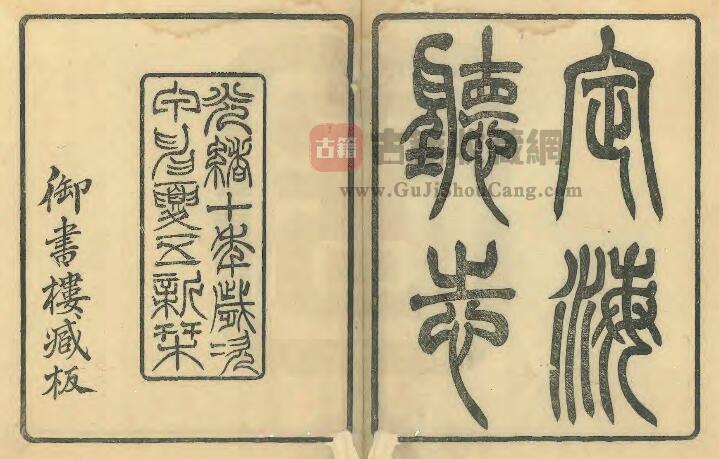 定海
聽志
光緒十年歲次
甲申夏五新栞
御書樓臧板
古籍
www.GuJiShouCang.com